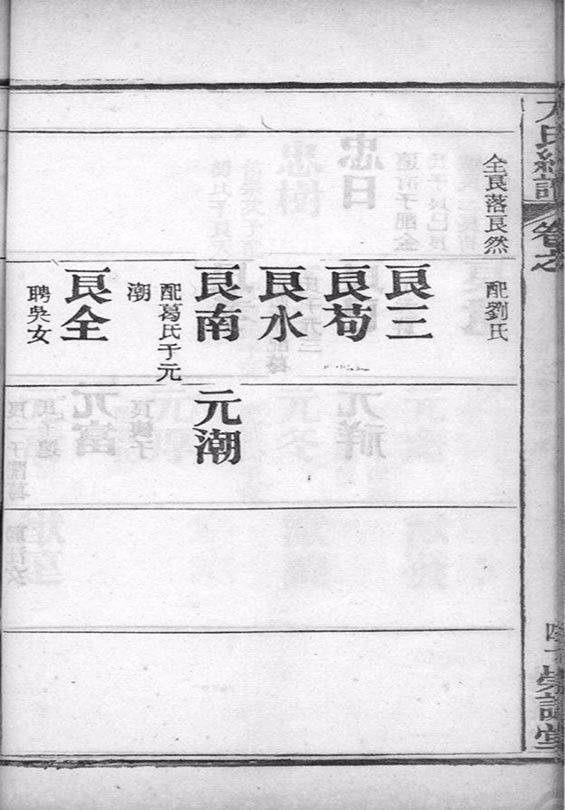 全良落良然
配劉氏
良三
良苟
良水
良南
元潮
配葛氏子元
潮
良全
聘吳女
氏
卷之